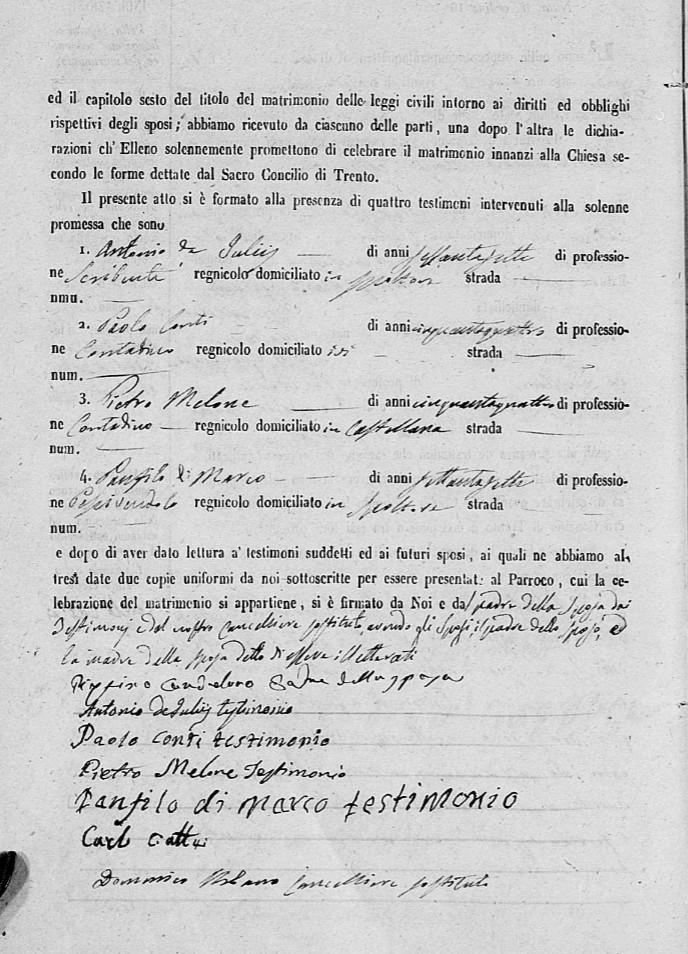 ed il capitolo sesto del titolo del matrimonio delle leggi civili intorno ai diritti ed obblighi
rispettivi degli sposi; abbiamo ricevuto da ciascuno delle parti, una dopo l'altra le dichia-
razioni ch' Elleno solennemente promettono di celebrare il matrimonio innanzi alla Chiesa se-
condo le forme dettate dal Sacro Concilio di Trento.
Il presente atto si è formato alla presenza di quattro testimoni intervenuti alla solenne
promessa che sono
1. Antonio de Juliis di anni settantasette di professio-
ne Scribente regnicolo domiciliato in Spoltore strada
nmu.
2. Paolo Conti di anni cinquantaquattro di professio-
ne Contadino regnicolo domiciliato ivi strada
num.
3. Pietro Melone di anni cinquantaquattro di professio-
ne Contadino regnicolo domiciliato in Castellana strada
num.
4. Panfilo di Marco di anni settantasette di professio-
ne Pescivendolo regnicolo domiciliato in Spoltore strada
num.
e dopo di aver dato lettura a' testimoni suddetti ed ai futuri sposi, ai quali ne abbiamo al-
tresì date due copie uniformi da noi sottoscritte per essere presentat: al Parroco, cui la ce-
lebrazione del matrimonio si appartiene, si è firmato da Noi e dal padre della sposa dai
Testimonj e dal nostro Cancelliere sostituto, avendo gli sposi, il padre dello sposo, ed
la madre della sposa detto di essere illetterati
Candeloro Padre della sposa
Antonio de Juliis testimonio
Paolo Conti testimonio
Pietro Melone Testimonio
Panfilo di Marco testimonio
Carlo
Domenico Cancelliere sostituto